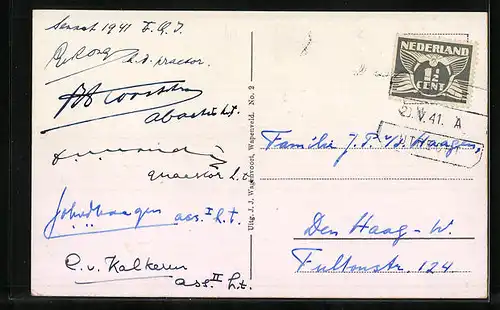 Senaat 1941 E.Q.J.
h.t. praetor.
abactis h.t.
quaestor h.t.
Joh. d. Haagen ass. I h.t.
R. v. Kalkeren
ass. II h.t.
Uitg. J. J. Wagevoort, Wapenveld. No. 2
NEDERLAND
1½
CENT
V 41. A
Familie J. P. v/d. Haagen,
Den Haag-W.
Fultonstr. 124.